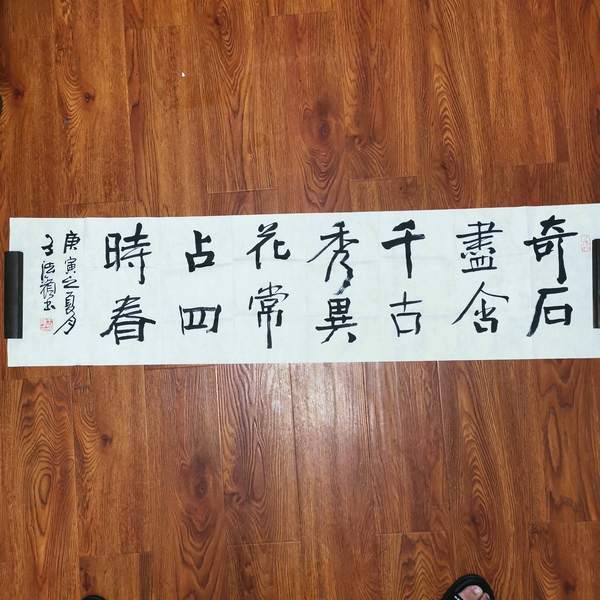 奇石
盡含
千古
秀異
花常
占四
時春
庚寅之夏月